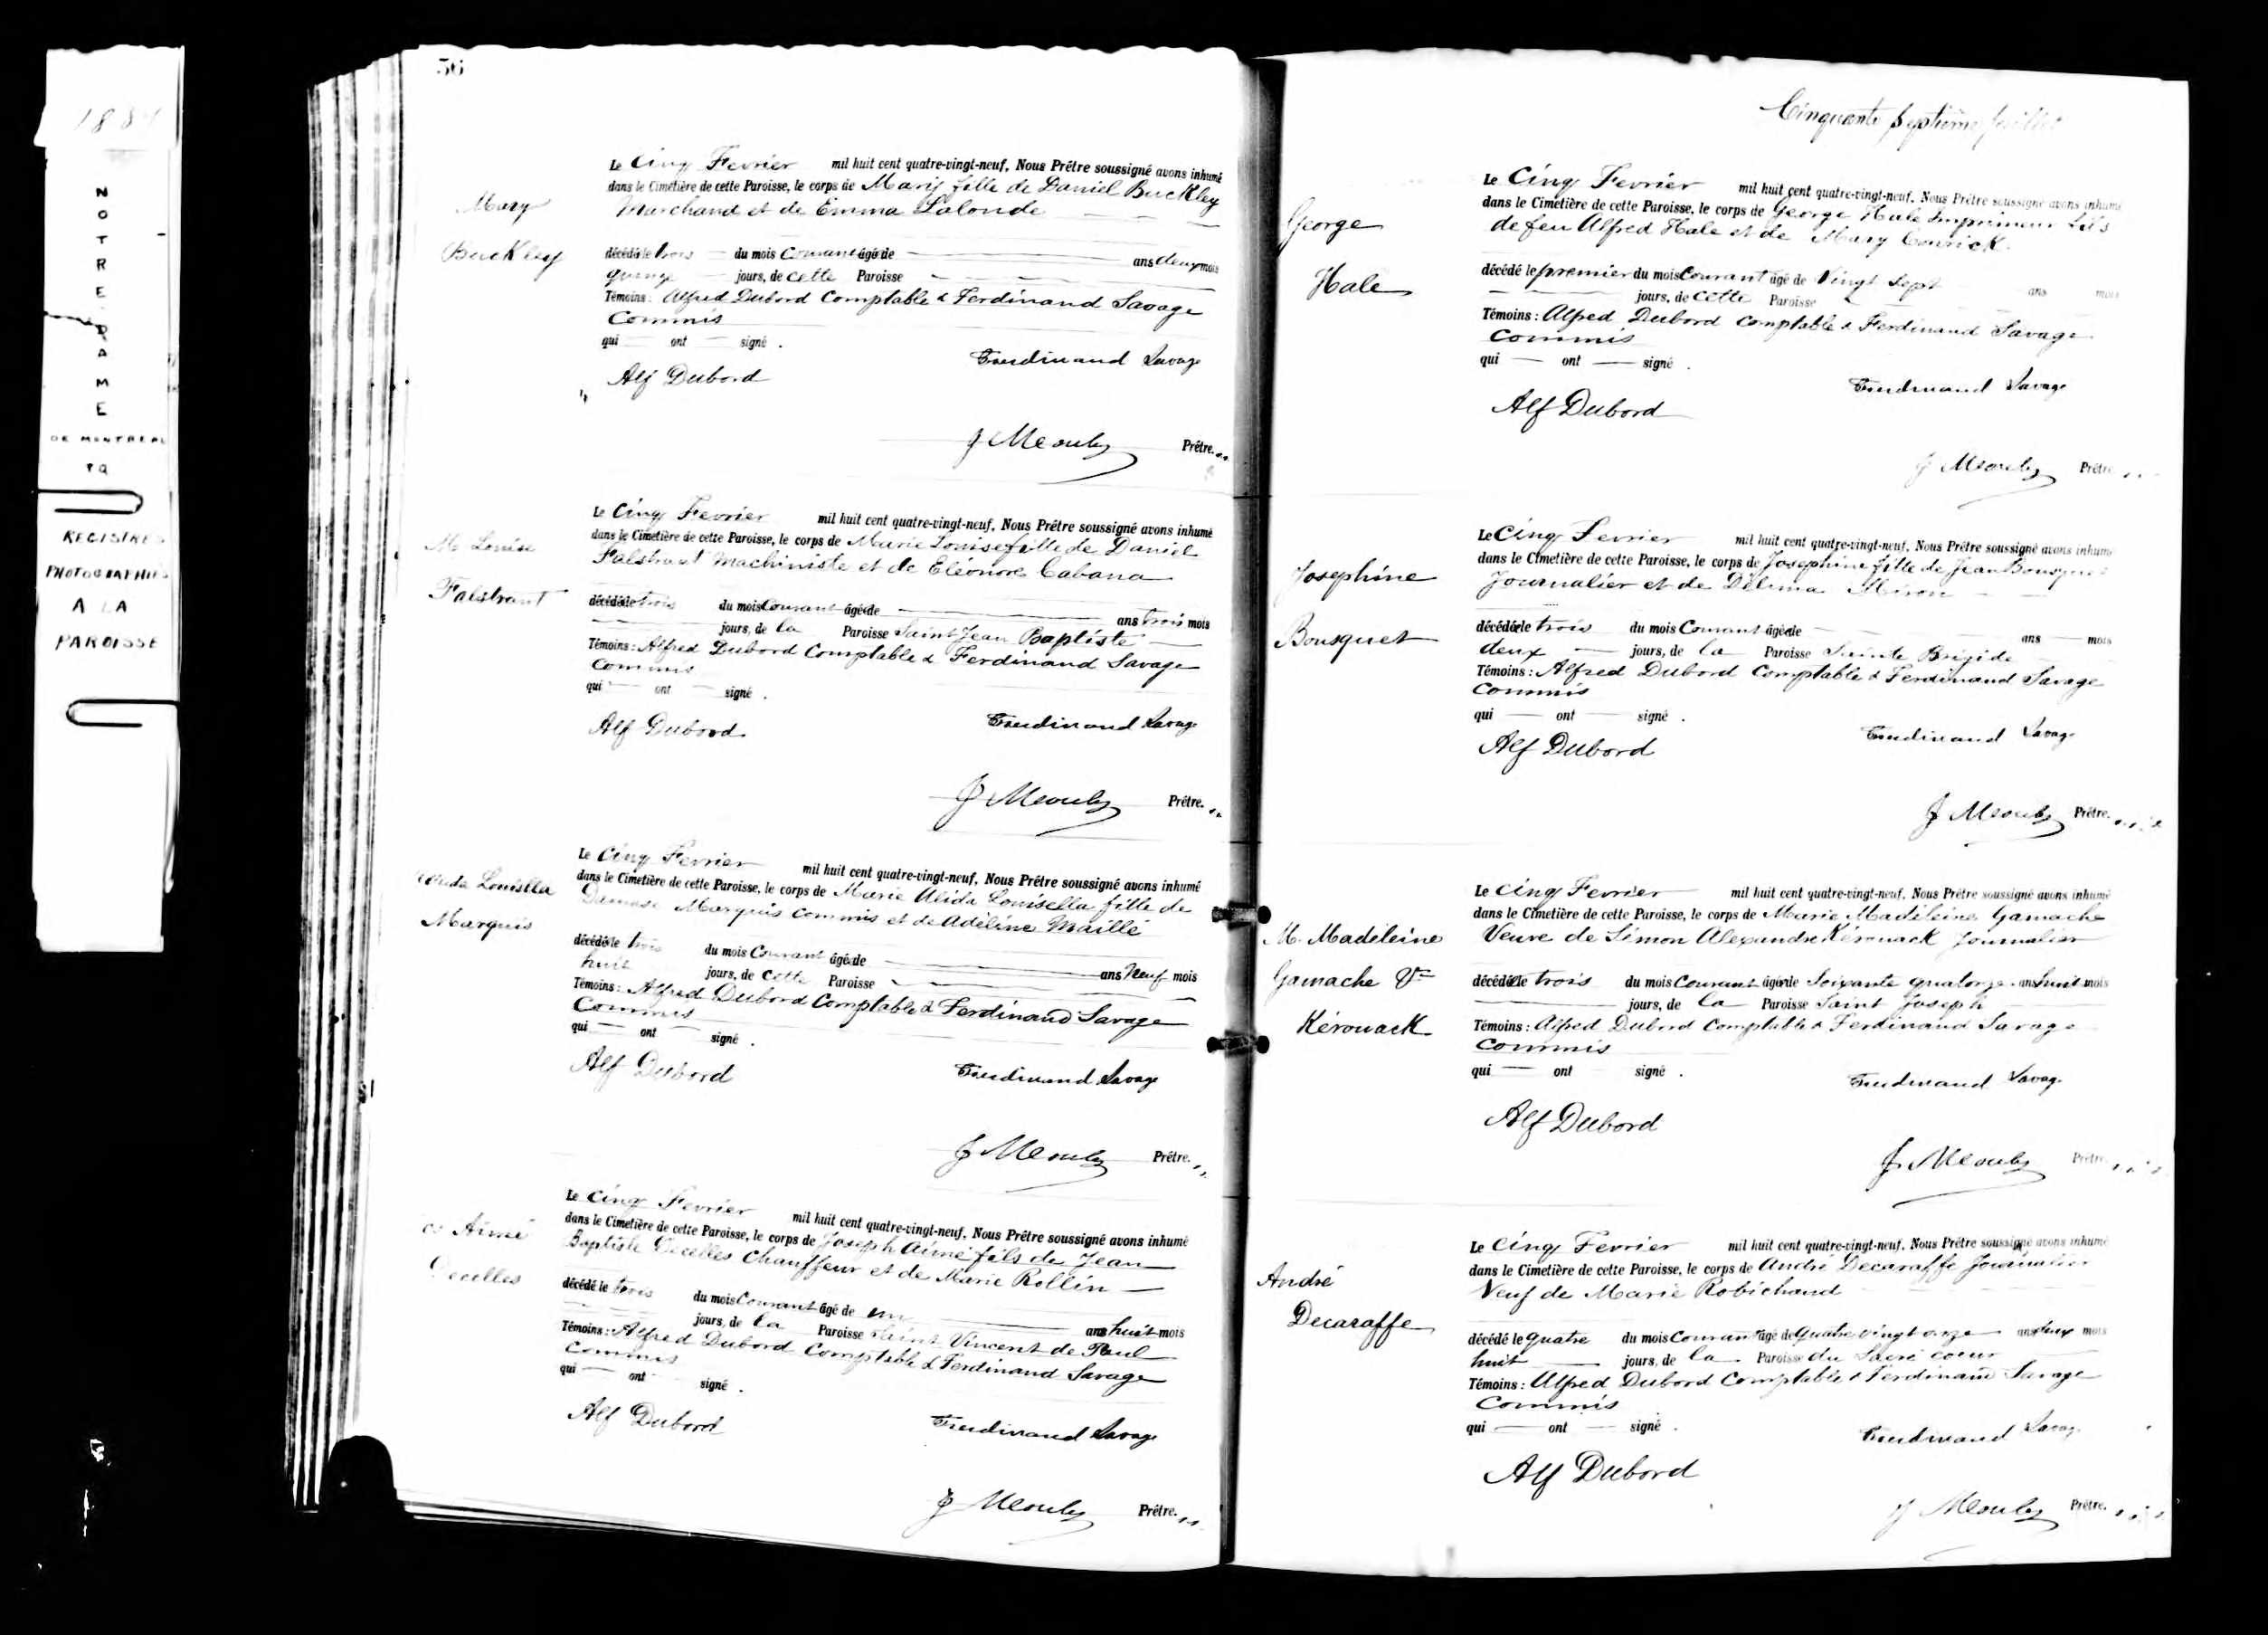 188
NOTRE DAME
DE MONTREAL
PQ
REGISTRES
PHOTOGRAPHIES
A LA
PAROISSE
56
Mary
Buckley
Le Cinq Fevrier mil huit cent quatre-vingt-neuf, Nous Prêtre soussigné avons inhumé
dans le Cimetière de cette Paroisse, le corps de Mary fille de Daniel Buckley
Marchand et de Emma Lalonde
décédée le trois du mois Courant âgée de ans deux mois
quinze jours, de cette Paroisse
Témoins: Alfred Dubord Comptable & Ferdinand Savage
Commis
qui ont signé.
Ferdinand Savage
Alf Dubord
Prêtre.
M. Louise
Falstrant
Le Cinq Fevrier mil huit cent quatre-vingt-neuf, Nous Prêtre soussigné avons inhumé
dans le Cimetière de cette Paroisse, le corps de Marie Louise fille de Daniel
Falstrant Machiniste et de Eléonore Cabana
décédée le trois du mois Courant âgée de ans trois mois
jours, de la Paroisse Saint Jean Baptiste
Témoins: Alfred Dubord Comptable & Ferdinand Savage
Commis
qui ont signé.
Ferdinand Savage
Alf Dubord
Prêtre.
Louisella
Marquis
Le Cinq Fevrier mil huit cent quatre-vingt-neuf, Nous Prêtre soussigné avons inhumé
dans le Cimetière de cette Paroisse, le corps de Marie Alida Louisella fille de
Damase Marquis Commis et de Adéline Maillé
décédée le trois du mois Courant âgée de ans Neuf mois
huit jours, de cette Paroisse
Témoins: Alfred Dubord Comptable & Ferdinand Savage
Commis
qui ont signé.
Alf Dubord Ferdinand Savage
Prêtre.
Aimé
Decelles
Le Cinq Fevrier mil huit cent quatre-vingt-neuf, Nous Prêtre soussigné avons inhumé
dans le Cimetière de cette Paroisse, le corps de Joseph Aimé fils de Jean
Baptiste Decelles Chauffeur et de Marie Rollin
décédé le trois du mois Courant âgé de un an huit mois
jours, de la Paroisse Saint Vincent de Paul
Témoins: Alfred Dubord Comptable & Ferdinand Savage
Commis
qui ont signé.
Alf Dubord Ferdinand Savage
Prêtre.
Cinquante septième feuillet
George
Hale
Le Cinq Fevrier mil huit cent quatre-vingt-neuf, Nous Prêtre soussigné avons inhumé
dans le Cimetière de cette Paroisse, le corps de George Hale Imprimeur fils
de feu Alfred Hale et de Mary
décédé le premier du mois Courant âgé de Vingt Sept ans mois
jours, de cette Paroisse
Témoins: Alfred Dubord Comptable & Ferdinand Savage
Commis
qui ont signé.
Ferdinand Savage
Alf Dubord
Prêtre
Josephine
Bousquet
Le Cinq Fevrier mil huit cent quatre-vingt-neuf, Nous Prêtre soussigné avons inhumé
dans le Cimetière de cette Paroisse, le corps de Josephine fille de Jean Bousquet
Journalier et de Délima Miron
décédée le trois du mois Courant âgée de ans mois
deux jours, de la Paroisse Sainte Brigide
Témoins: Alfred Dubord Comptable & Ferdinand Savage
Commis
qui ont signé.
Ferdinand Savage
Alf Dubord
Prêtre.
M. Madeleine
Gamache Ve
Kérouack
Le Cinq Fevrier mil huit cent quatre-vingt-neuf, Nous Prêtre soussigné avons inhumé
dans le Cimetière de cette Paroisse, le corps de Marie Madeleine Gamache
Veuve de Simon Alexandre Kérouack Journalier
décédée le trois du mois Courant âgée de Soixante quatorze ans huit mois
jours, de la Paroisse Saint Joseph
Témoins: Alfred Dubord Comptable & Ferdinand Savage
Commis
qui ont signé.
Ferdinand Savage
Alf Dubord
Prêtre
André
Decaraffe
Le Cinq Fevrier mil huit cent quatre-vingt-neuf, Nous Prêtre soussigné avons inhumé
dans le Cimetière de cette Paroisse, le corps de André Decaraffe Journalier
Veuf de Marie Robichaud
décédé le quatre du mois Courant âgé de Quatre vingt onze ans deux mois
huit jours, de la Paroisse du Sacré coeur
Témoins: Alfred Dubord Comptable & Ferdinand Savage
Commis
qui ont signé.
Ferdinand Savage
Alf Dubord
Prêtre.